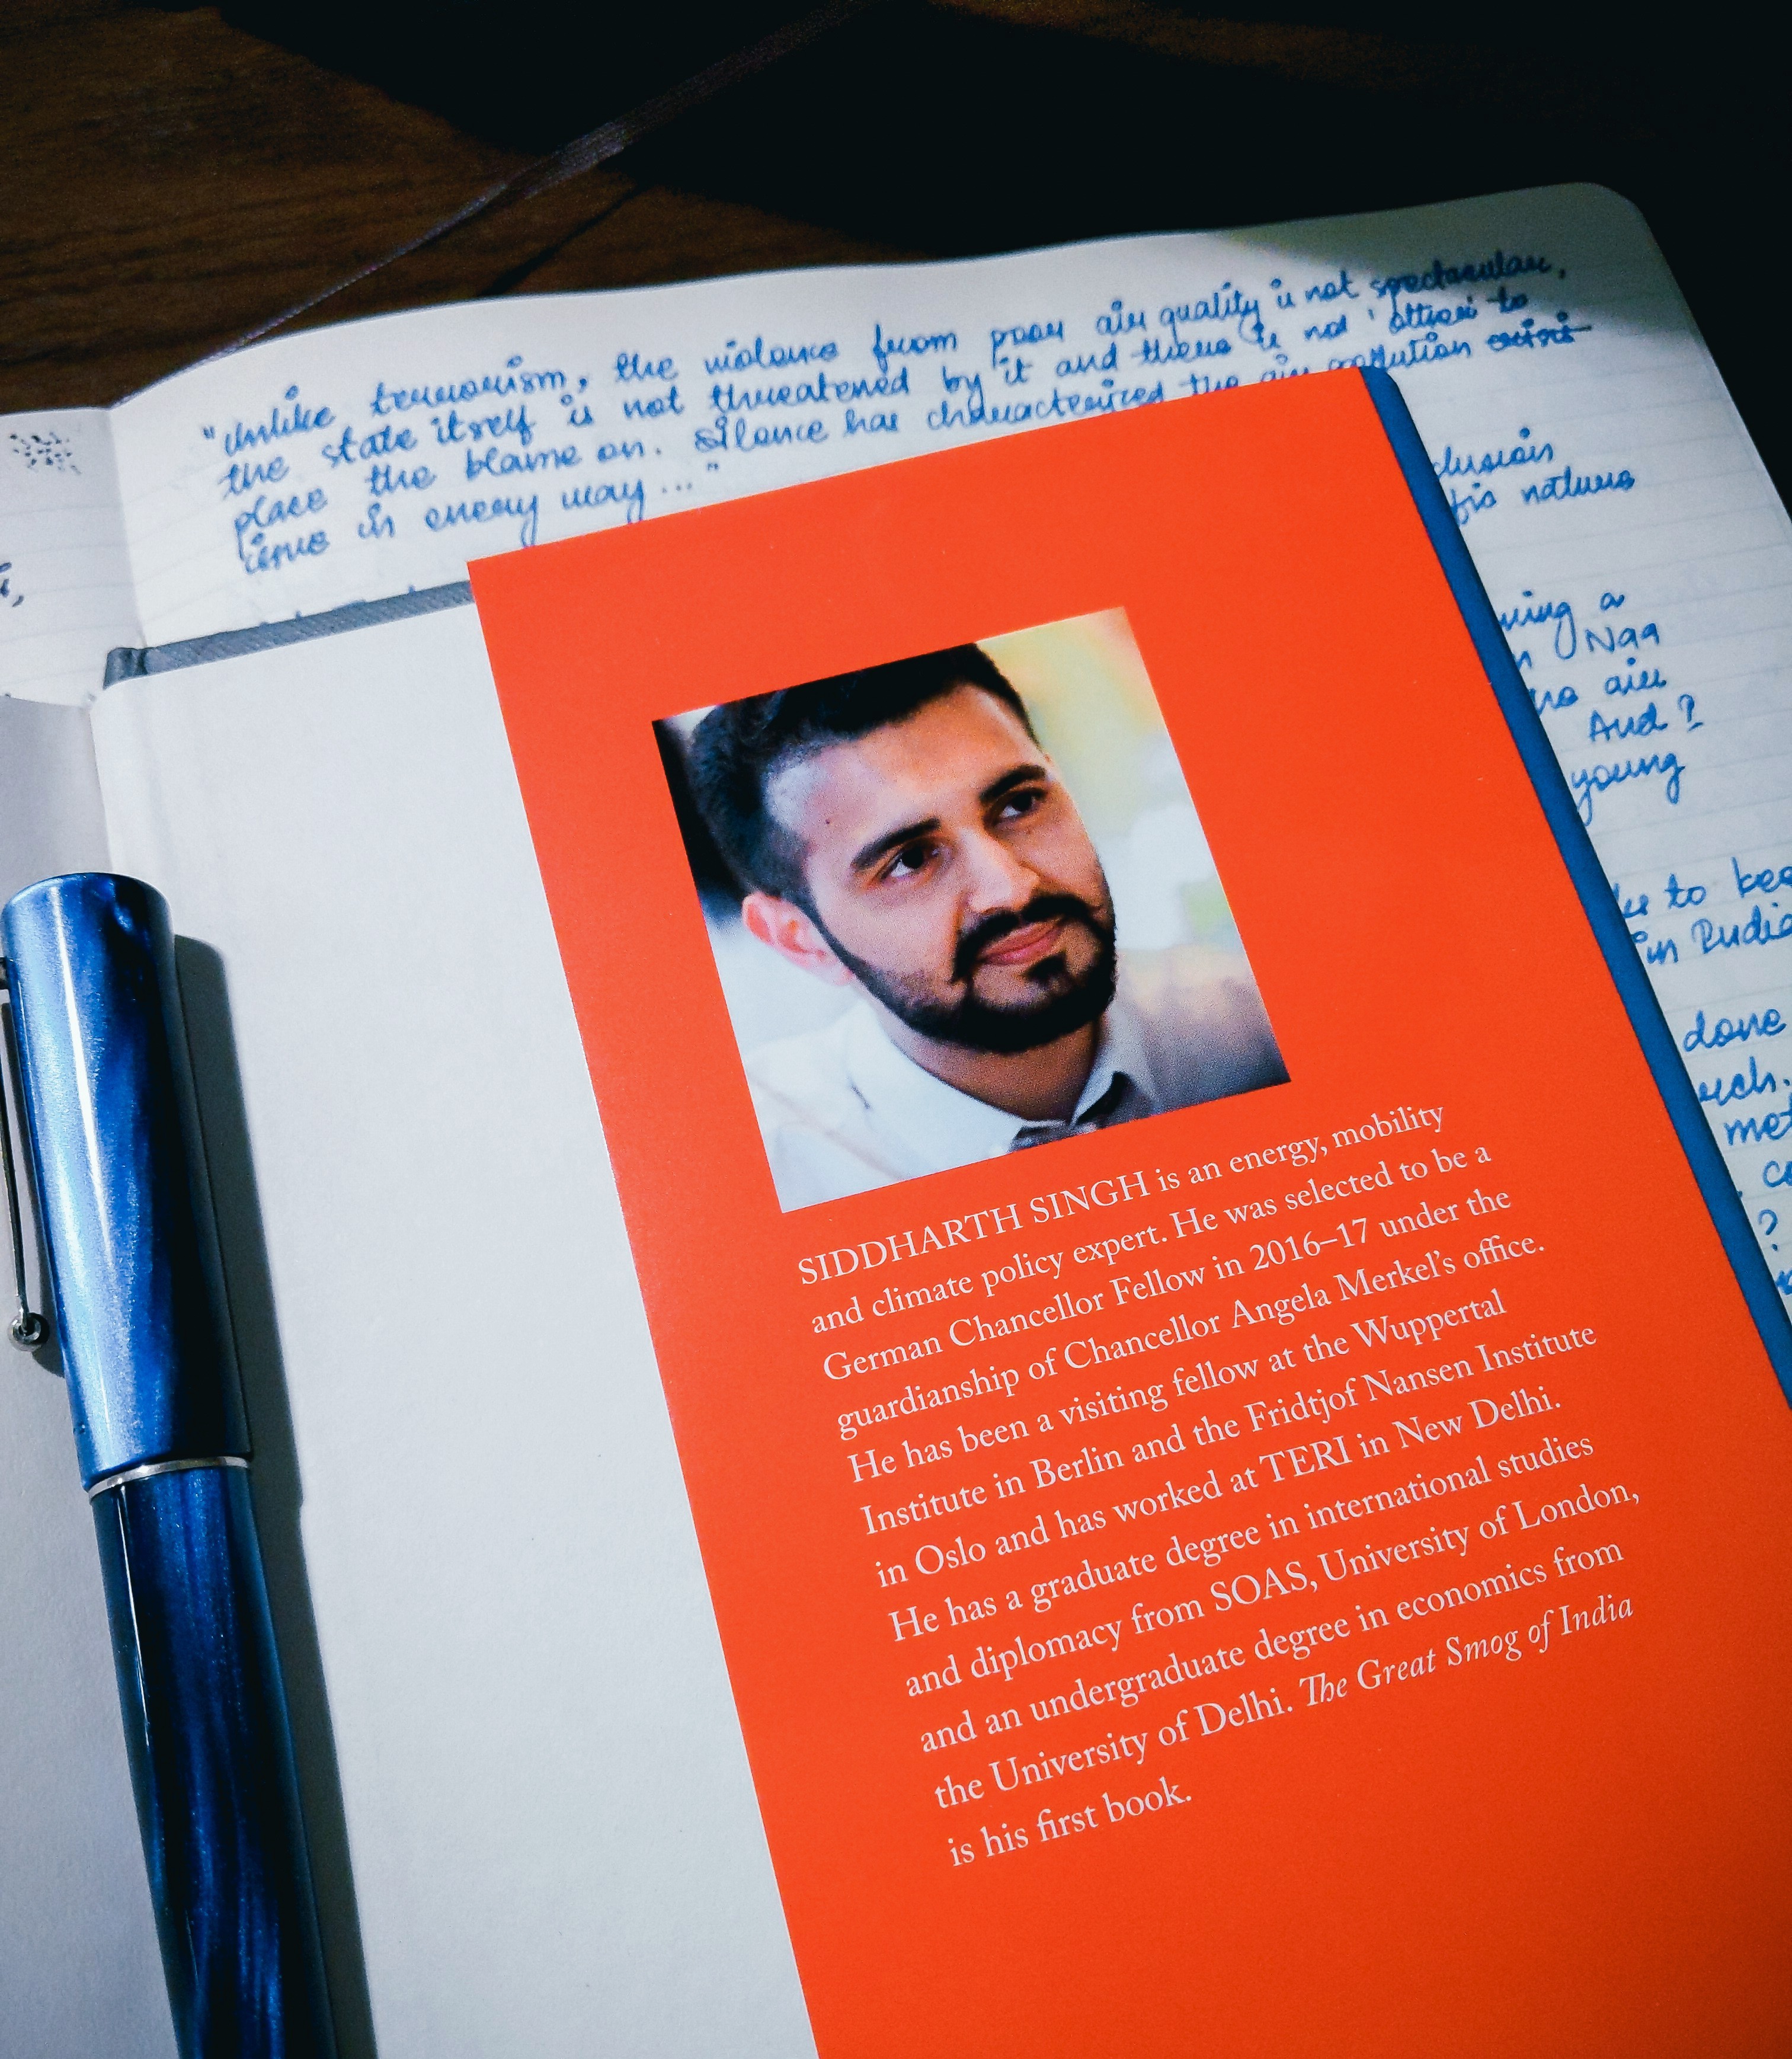 "Unlike terrorism, the violence from poor air quality is not spectacular,
the state itself is not threatened by it and there is not 'other' to
place the blame on. Silence has characterized the air pollution crisis
issue in every way ..."
nature
a
Naa
air
And ?
young
to
in India
done
?
SIDDHARTH SINGH is an energy, mobility
and climate policy expert. He was selected to be a
German Chancellor Fellow in 2016–17 under the
guardianship of Chancellor Angela Merkel's office.
He has been a visiting fellow at the Wuppertal
Institute in Berlin and the Fridtjof Nansen Institute
in Oslo and has worked at TERI in New Delhi.
He has a graduate degree in international studies
and diplomacy from SOAS, University of London,
and an undergraduate degree in economics from
the University of Delhi. The Great Smog of India
is his first book.